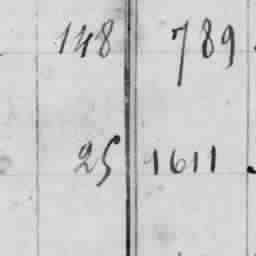 148 789
25 1611